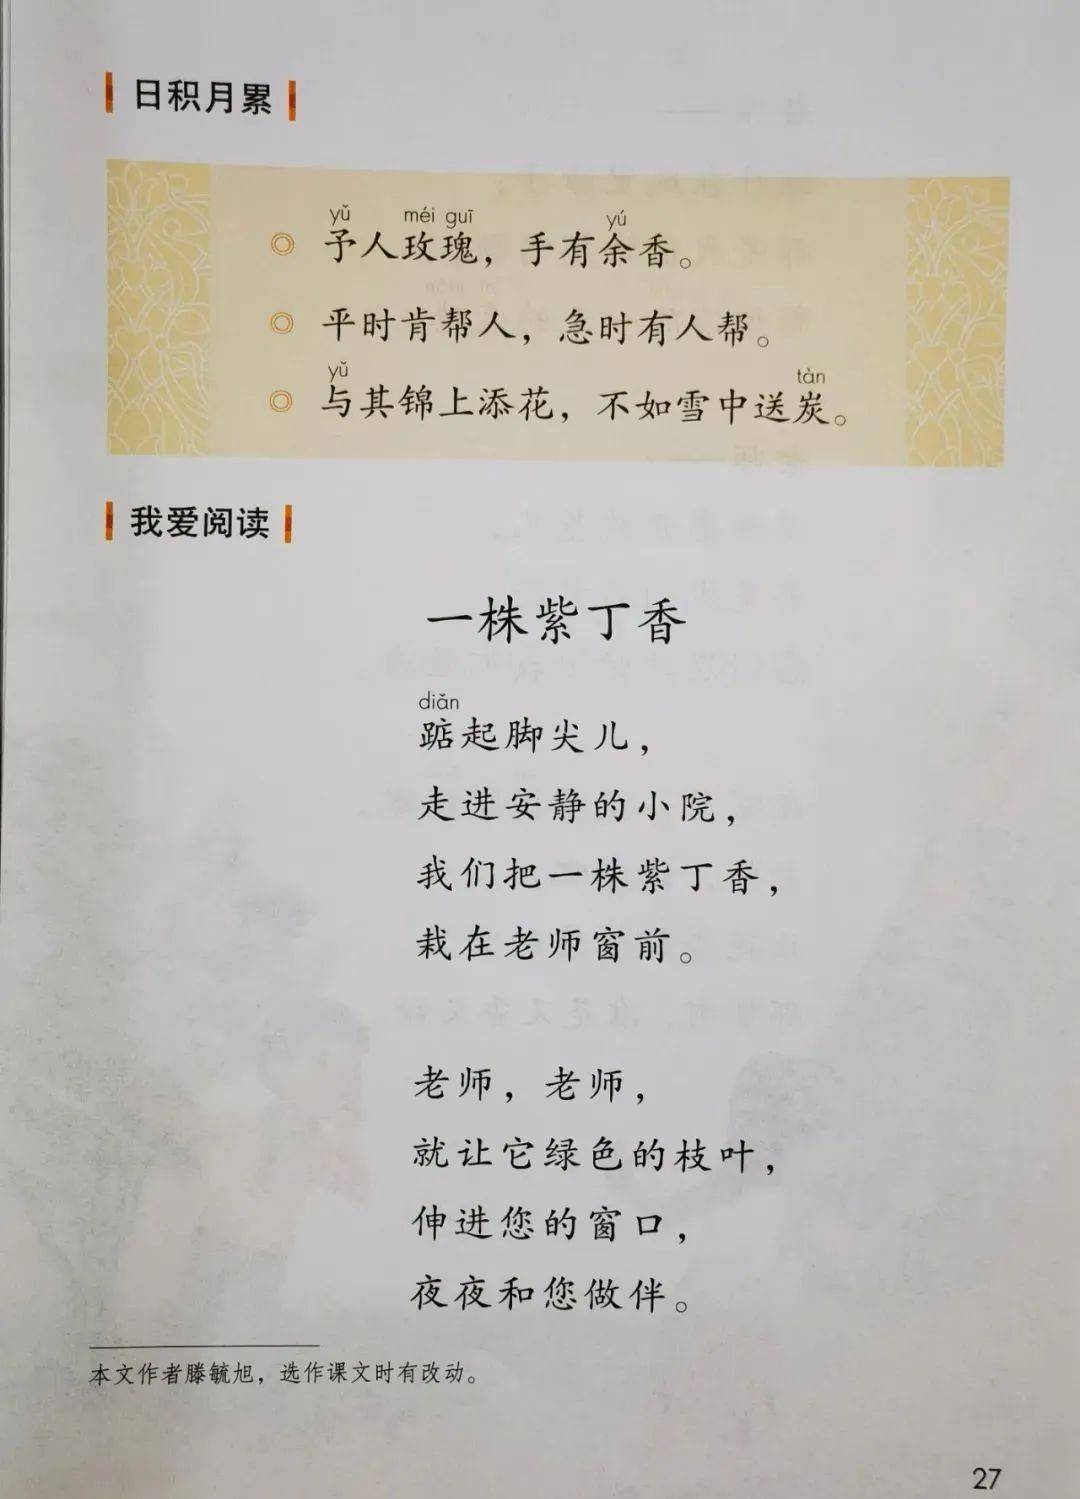 日积月累
yǔ méi guī yú
◎ 予人玫瑰，手有余香。
◎ 平时肯帮人，急时有人帮。
yǔ tàn
◎ 与其锦上添花，不如雪中送炭。
我爱阅读
一株紫丁香
diǎn
踮起脚尖儿，
走进安静的小院，
我们把一株紫丁香，
栽在老师窗前。
老师，老师，
就让它绿色的枝叶，
伸进您的窗口，
夜夜和您做伴。
本文作者滕毓旭，选作课文时有改动。
27